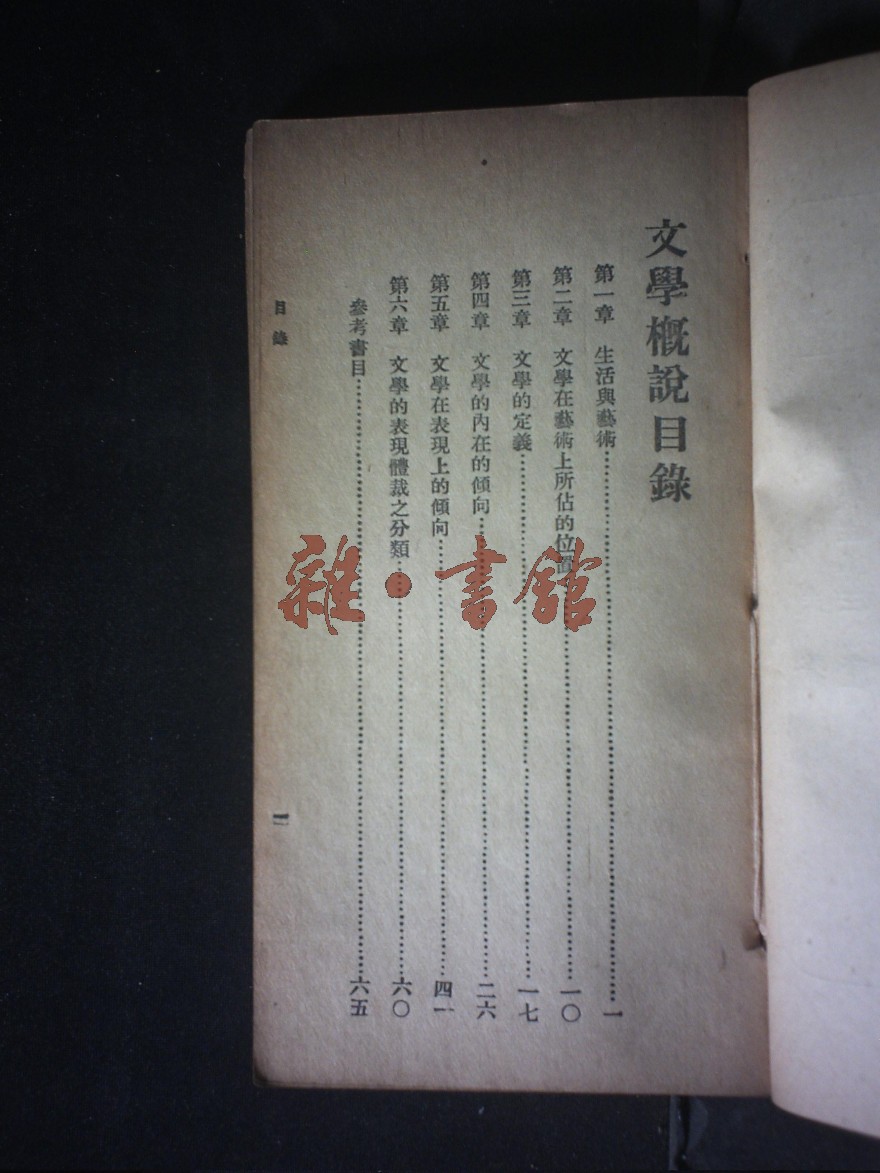 文學概說目錄
第一章　生活與藝術…………一
第二章　文學在藝術上所佔的位置…………一〇
第三章　文學的定義…………一七
第四章　文學的內在的傾向…………二六
第五章　文學在表現上的傾向…………四一
第六章　文學的表現體裁之分類…………六〇
參考書目…………六五
目錄
一
雜·書館